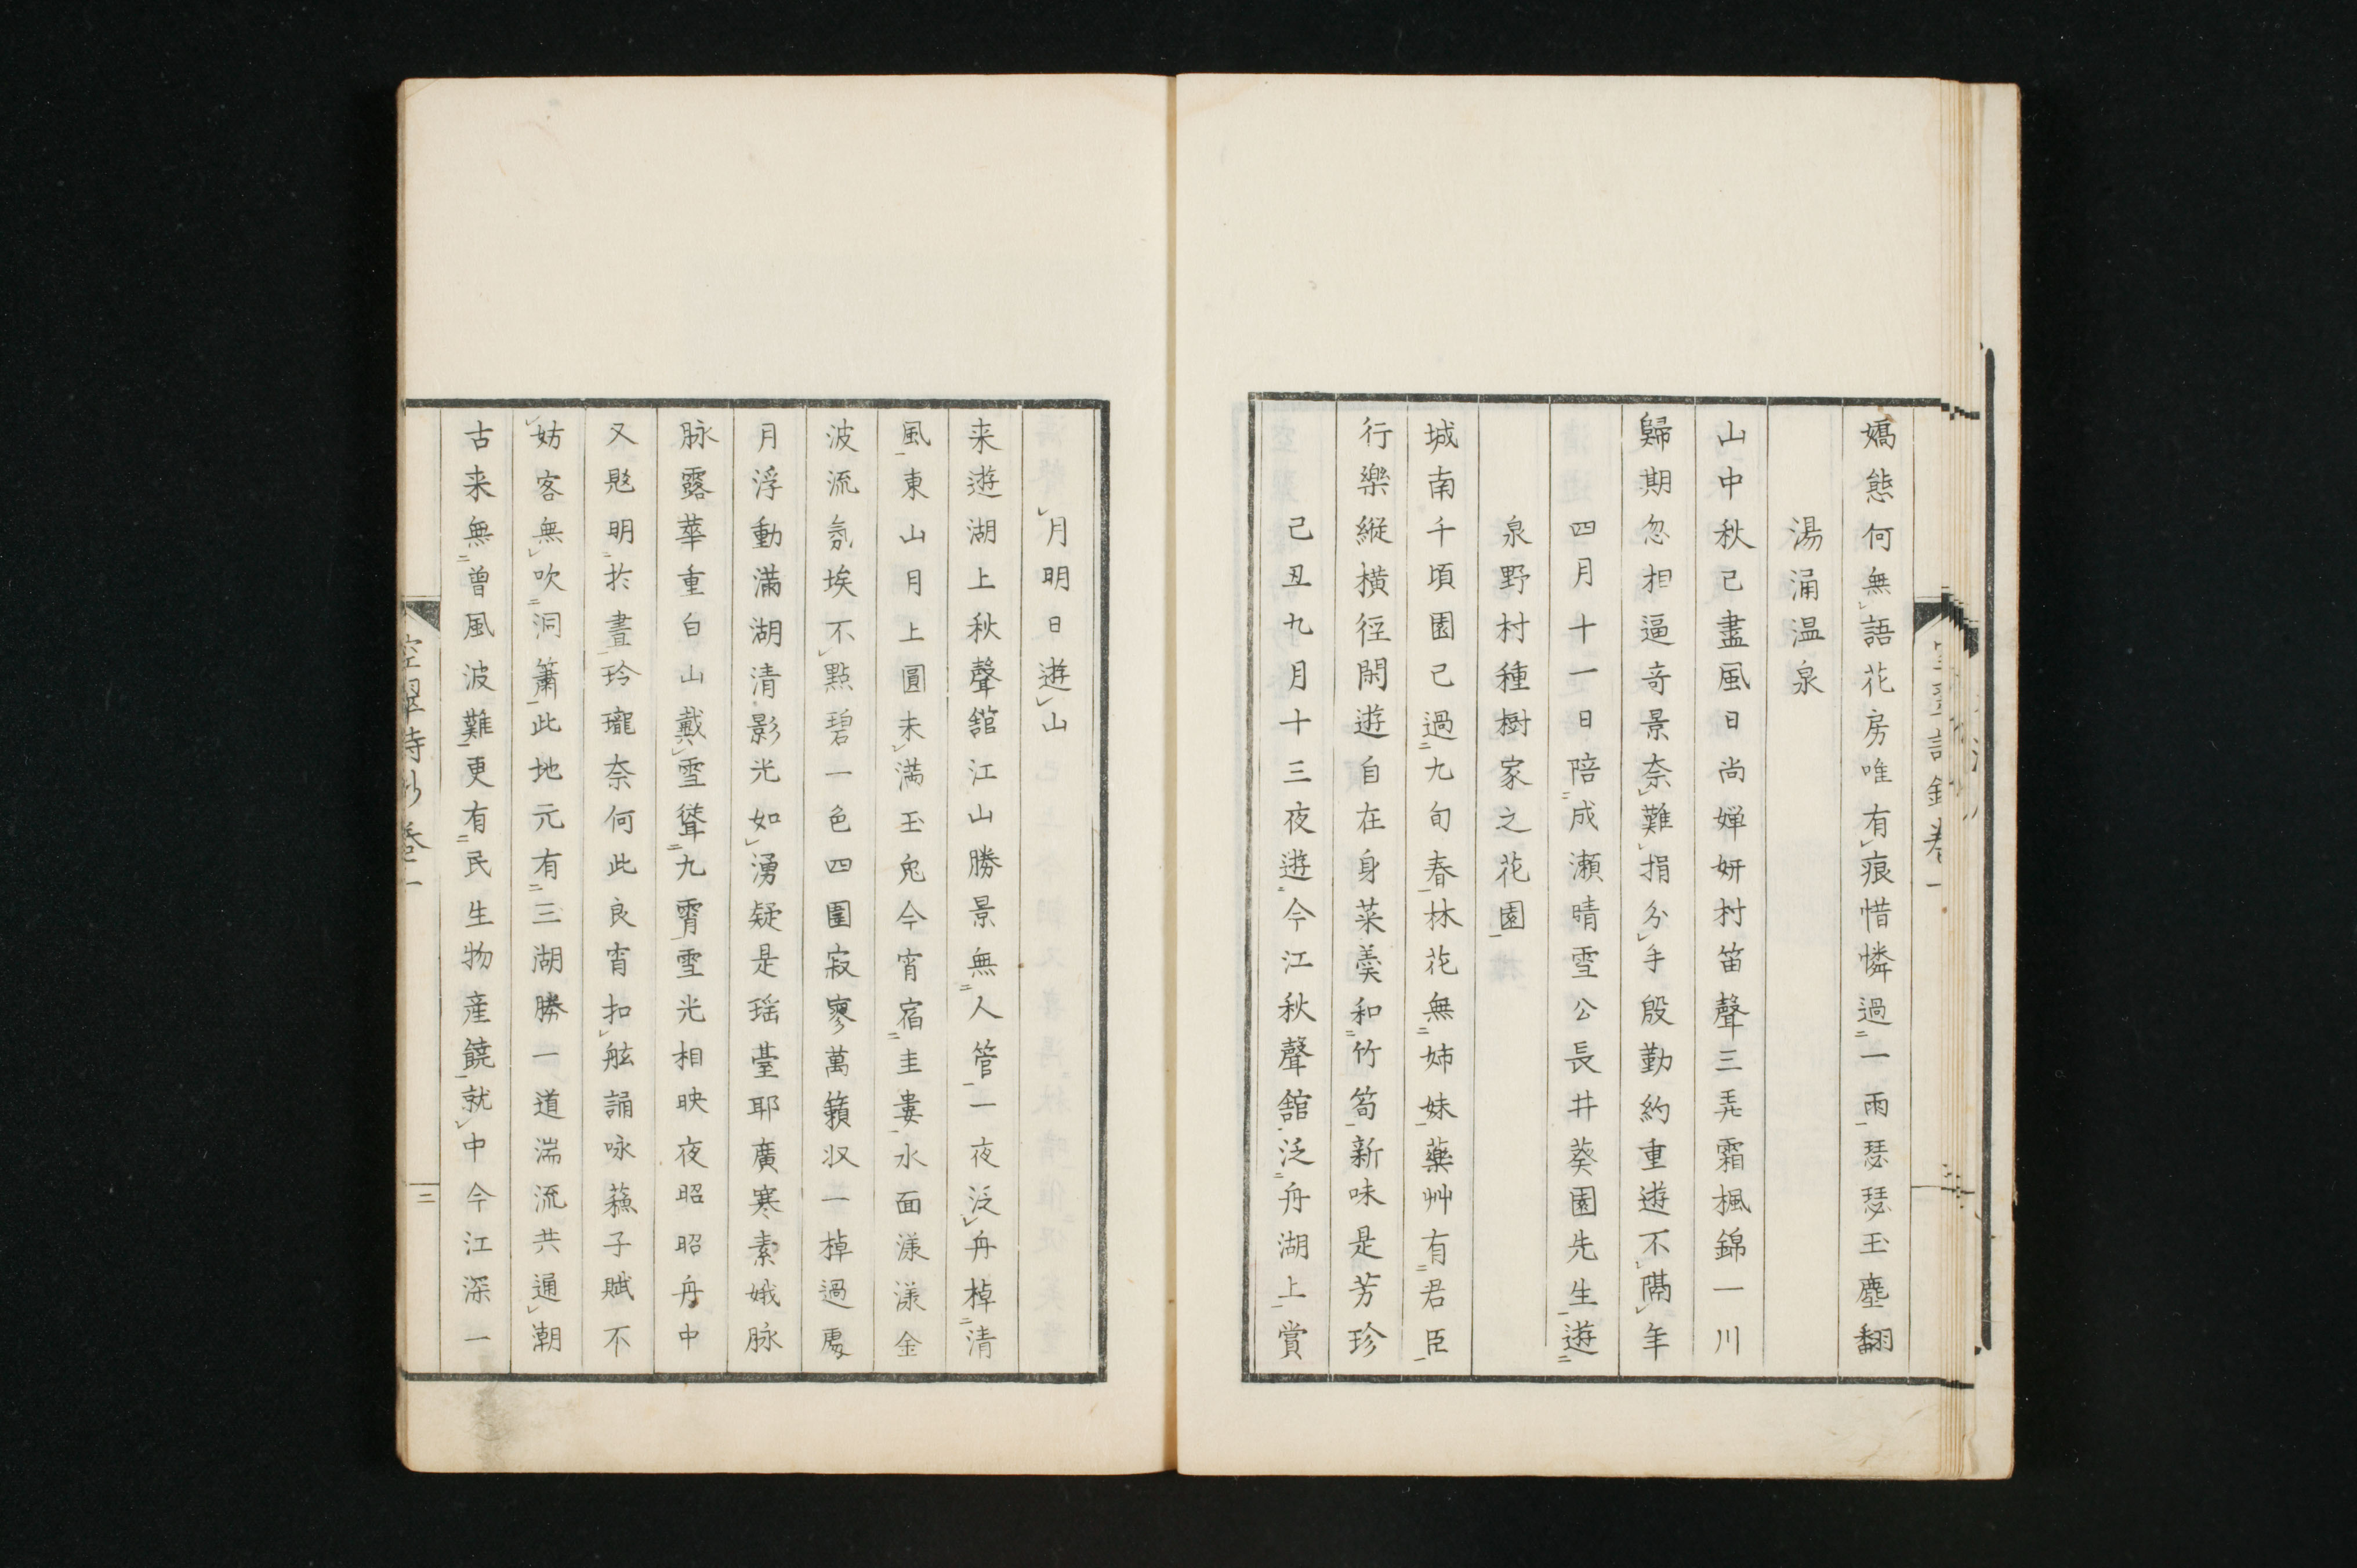 嬌態何無語花房唯有痕惜憐過一雨瑟瑟玉塵翻
湯涌温泉
山中秋已盡風日尚嬋妍村笛聲三弄霜楓錦一川
歸期忽相逼竒景奈難捐分手殷勤約重遊不隔年
四月十一日陪成瀬晴雪公長井葵園先生遊
泉野村種樹家之花園
城南千頃園已過九旬春林花無姉妹藥艸有君臣
行樂縱横徑閑遊自在身菜羹和竹筍新味是芳珍
己丑九月十三夜遊今江秋聲舘泛舟湖上賞
月明日遊山
来遊湖上秋聲舘江山勝景無人管一夜泛舟棹清
風東山月上圓未満玉兔今宵宿圭婁水面漾漾金
波流氛埃不點碧一色四圍寂寥萬籟収一棹過處
月浮動滿湖清影光如湧疑是瑶臺耶廣寒素娥脉
脉露華重白山戴雪聳九霄雪光相映夜昭昭舟中
又兟明於晝玲瓏奈何此良宵扣舷誦咏蘓子賦不
妨客無吹洞簫此地元有三湖勝一道湍流共通潮
古来無曾風波難更有民生物産饒就中今江深一
空翠詩鈔巻一
二